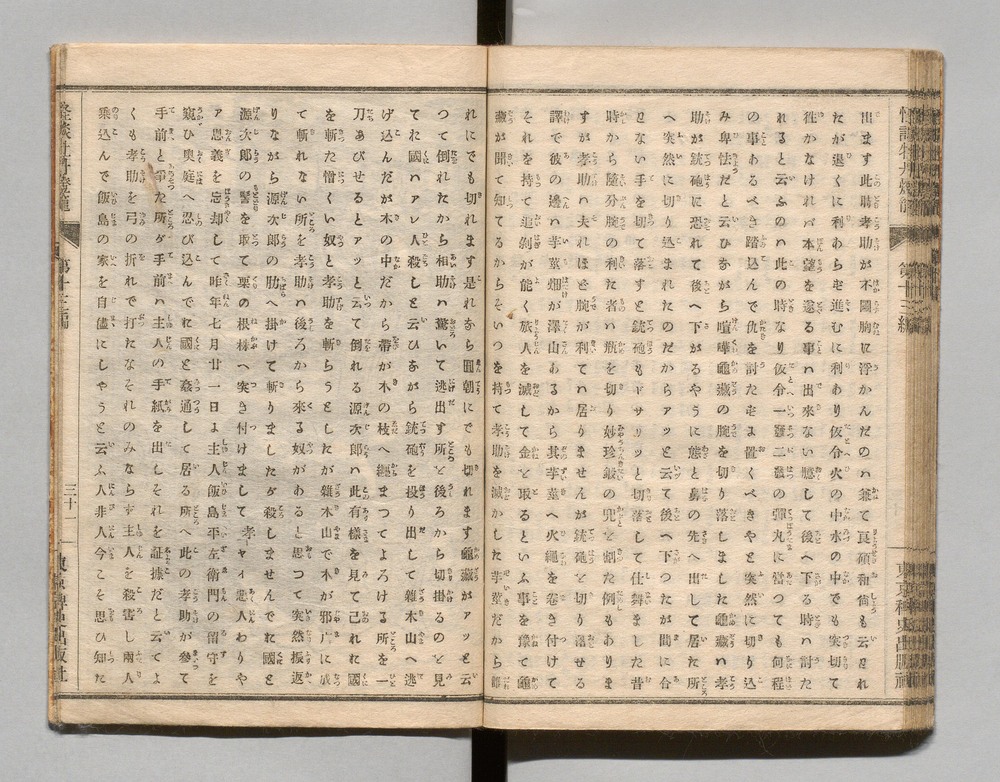 怪談牡丹燈籠 第十三編 東京稗史出版社
出ます此時孝助が不圖胸に浮かんだのハ兼て良碩和尚も云はれ
たが退くに利あらず進むに利あり仮令火の中水の中でも突切て
徃かなければ本望を遂る事ハ出來ない臆して後へ下る時ハ討た
れると云ふのハ此の時なり仮令一發二發の彈丸に當つても何程
の事あるべき踏込んで仇を討たずに置くべきやと突然に切り込
み卑怯だと云ひながら喧嘩龜藏の腕を切り落しました龜藏ハ孝
助が銃砲に恐れて後へ下がるやうに態と鼻の先へ出して居た所
へ突然に切り込まれたのだからアッと云て後へ下つたが間に合
はない手を切て落すと銃砲もドッサリと切落して仕舞ました昔
時から隨分腕の利た者ハ瓶を切り妙珍鍛の兜を割た例もありま
すが孝助ハ夫れほど腕が利てハ居りませんが銃砲を切り落せる
譯で彼の邊ハ芋莖畑が澤山あるから其芋莖へ火繩を卷き付けて
それを持て追剥が能く旅人を滅して金を取るといふ事を豫て龜
藏が聞て知てるからそいつを持て孝助を滅かした芋莖だから誰
れにでも切れます是れなら圓朝にでも切れます龜藏がアッと云
つて倒れたから相助ハ驚いて迯出す所を後ろから切掛るのを見
てお國ハアレ人殺しと云ひながら銃砲を投り出して雜木山へ迯
げ込んだが木の中だから帶が木の枝へ纒まつてよろける所を一
刀あびせるとアッと云て倒れる源次郎ハ此有樣を見て己れお國
を斬た憎くい奴と孝助を斬らうとしたが雜木山で木が邪广に成
て斬れない所を孝助ハ後ろから來る奴があると思つて突然振返
りながら源次郎の肋へ掛けて斬りましたが殺しませんでお國と
源次郎の髻を取て栗の根株へ突き付けまして孝「ヤイ惡人わりや
ア恩義を忘却して昨年七月廿一日に主人飯島平左衛門の留守を
窺ひ奥庭へ忍び込んでお國と姦通して居る所へ此の孝助が參て
手前と爭た所が手前ハ主人の手紙を出しそれを証據だと云てよ
くも孝助を弓の折れで打たなそれのみならず主人を殺害し兩人
乘込んで飯島の家を自儘にしやうと云ふ人非人今こそ思ひ知た
怪談牡丹燈籠 第十三編 三十一 東京稗史出版社